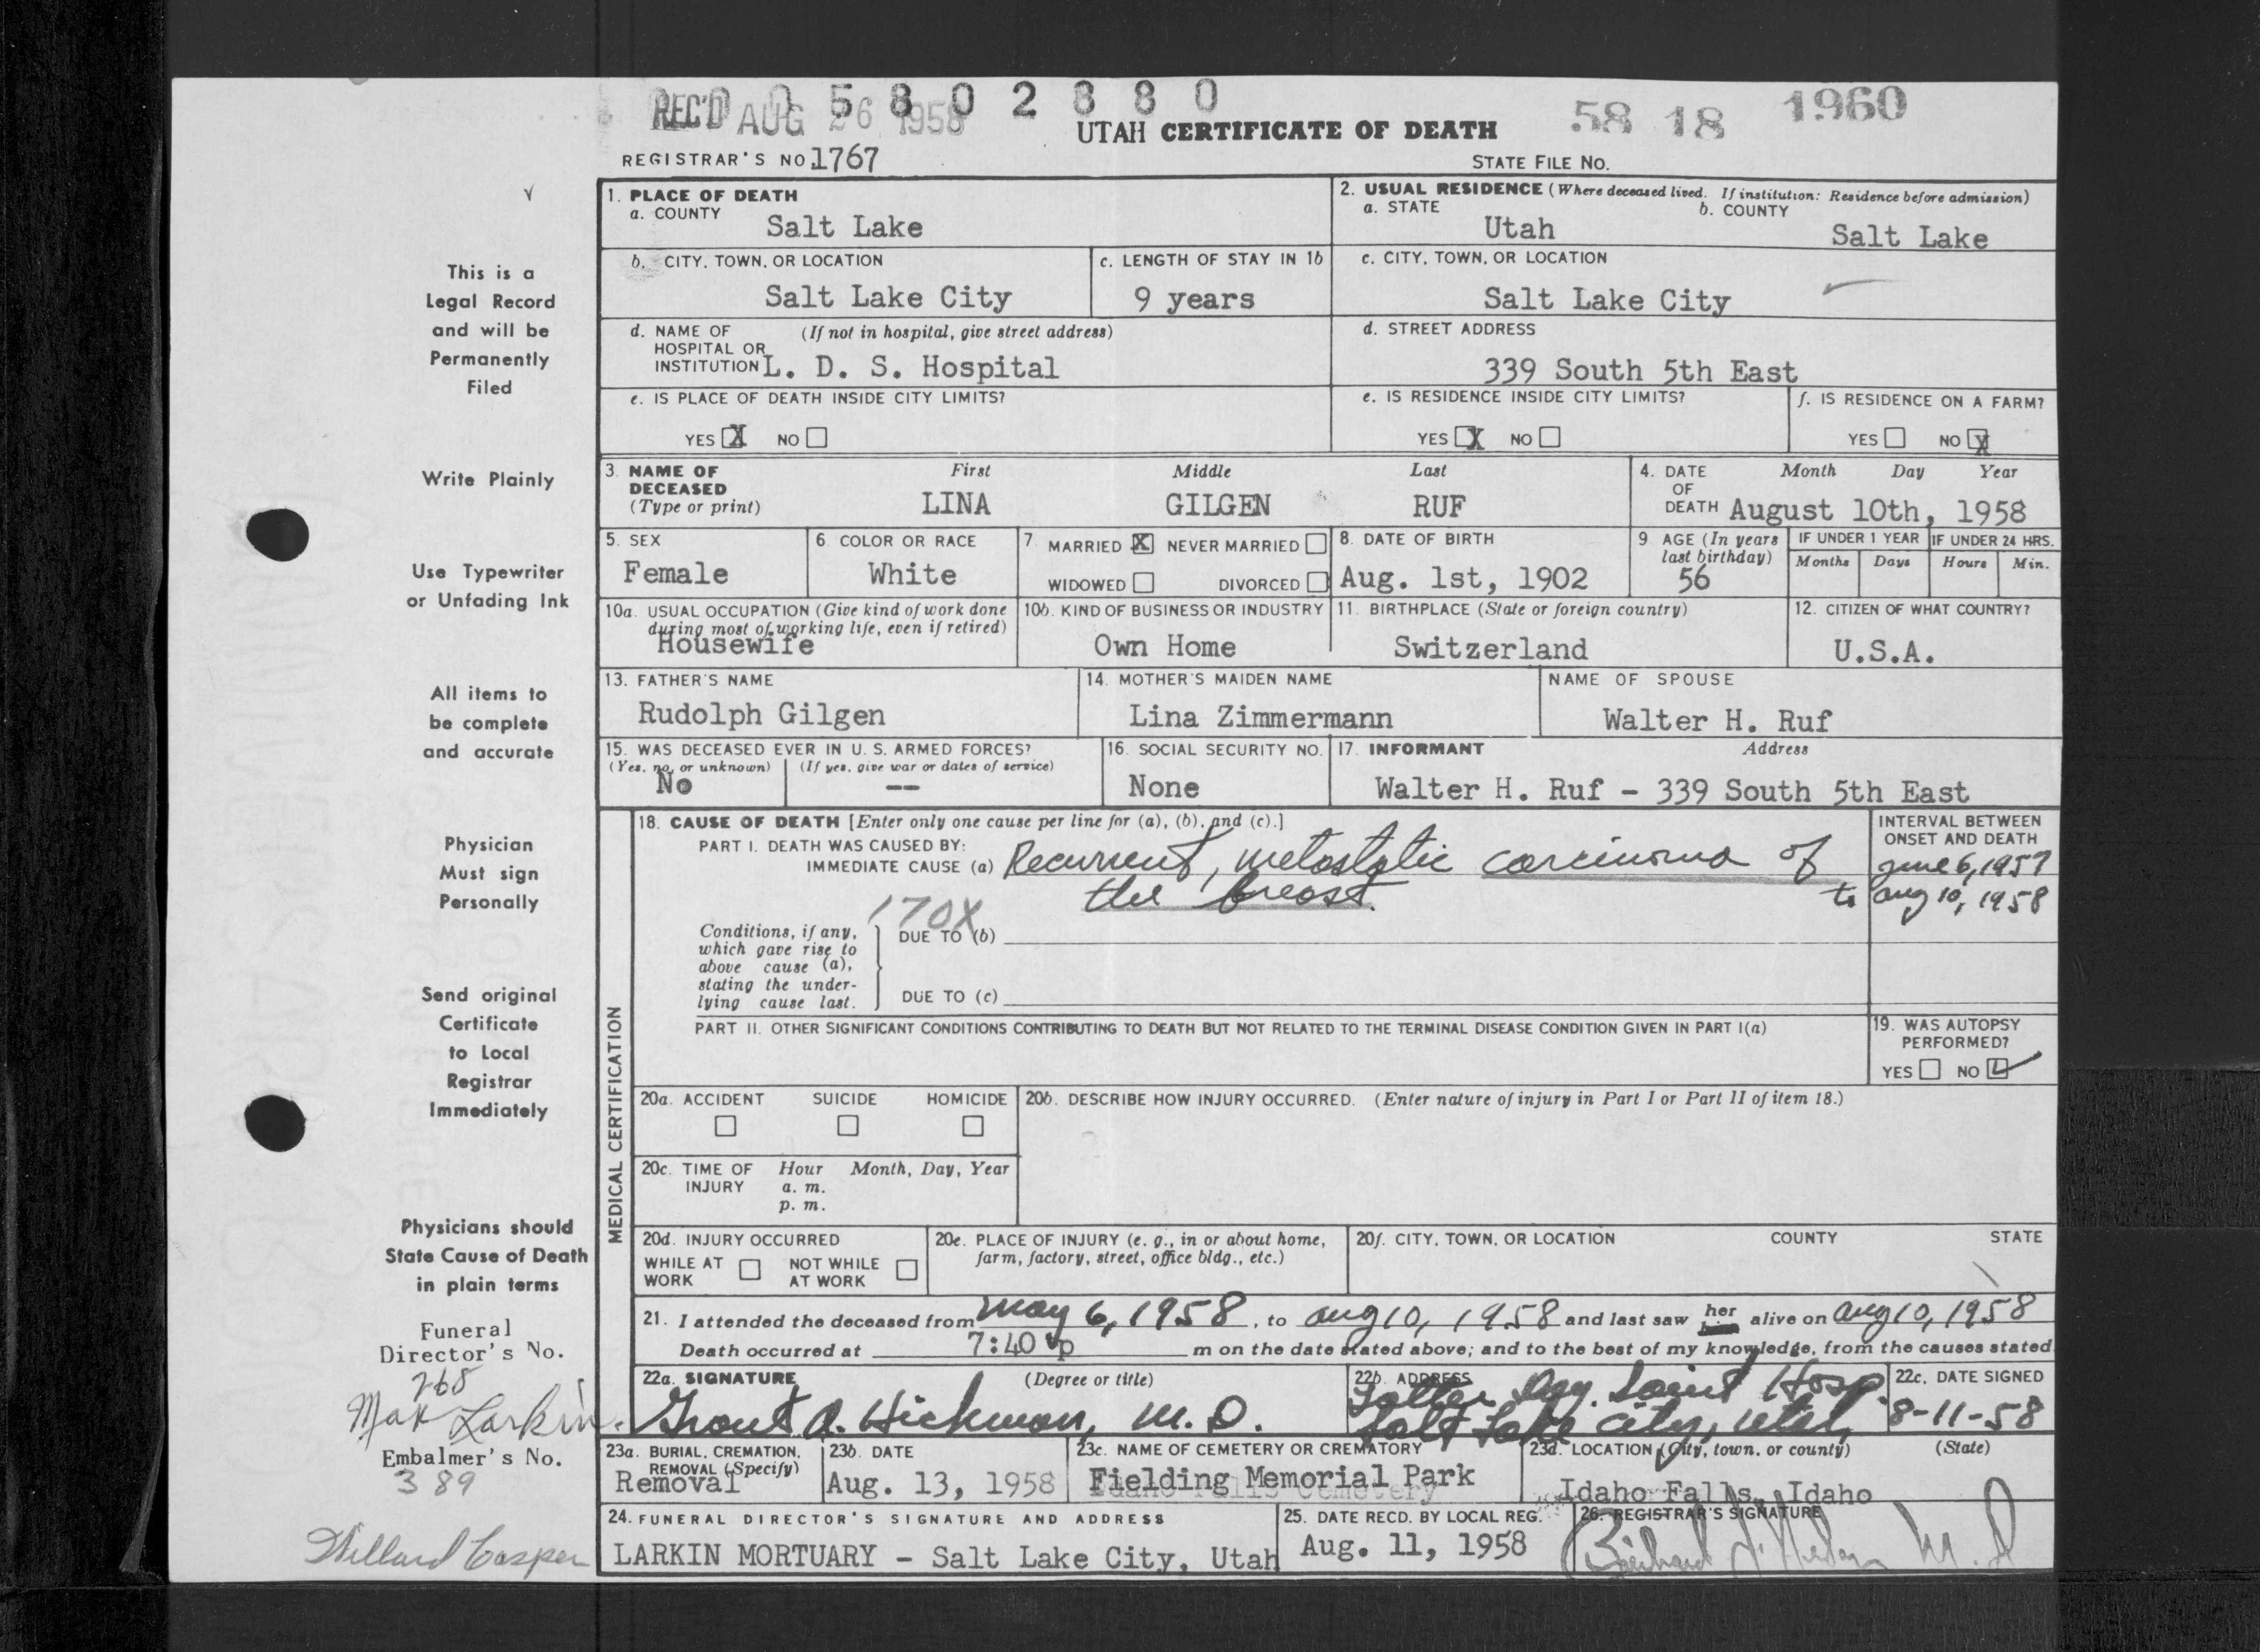 0 5 8 0 2 8 8 0
REC'D AUG 26 1958
58 18 1960
UTAH CERTIFICATE OF DEATH
REGISTRAR'S NO. 1767
STATE FILE NO.
This is a
Legal Record
and will be
Permanently
Filed
Write Plainly
Use Typewriter
or Unfading Ink
All items to
be complete
and accurate
Physician
Must sign
Personally
Send original
Certificate
to Local
Registrar
Immediately
Physicians should
State Cause of Death
in plain terms
Funeral
Director's No.
268
Max Larkin
Embalmer's No.
389
Willard Casper
1. PLACE OF DEATH
a. COUNTY
Salt Lake
2. USUAL RESIDENCE (Where deceased lived. If institution: Residence before admission)
a. STATE
Utah
b. COUNTY
Salt Lake
b. CITY, TOWN, OR LOCATION
Salt Lake City
c. LENGTH OF STAY IN 1b
9 years
c. CITY, TOWN, OR LOCATION
Salt Lake City
d. NAME OF (If not in hospital, give street address)
HOSPITAL OR
INSTITUTION L. D. S. Hospital
d. STREET ADDRESS
339 South 5th East
e. IS PLACE OF DEATH INSIDE CITY LIMITS?
YES X NO
e. IS RESIDENCE INSIDE CITY LIMITS?
YES X NO
f. IS RESIDENCE ON A FARM?
YES NO X
3. NAME OF DECEASED (Type or print)
First Middle Last
LINA GILGEN RUF
4. DATE OF DEATH
Month Day Year
August 10th, 1958
5. SEX
Female
6. COLOR OR RACE
White
7. MARRIED X NEVER MARRIED
WIDOWED DIVORCED
8. DATE OF BIRTH
Aug. 1st, 1902
9 AGE (In years last birthday)
56
IF UNDER 1 YEAR
Months Days
IF UNDER 24 HRS.
Hours Min.
10a. USUAL OCCUPATION (Give kind of work done
during most of working life, even if retired)
Housewife
10b. KIND OF BUSINESS OR INDUSTRY
Own Home
11. BIRTHPLACE (State or foreign country)
Switzerland
12. CITIZEN OF WHAT COUNTRY?
U.S.A.
13. FATHER'S NAME
Rudolph Gilgen
14. MOTHER'S MAIDEN NAME
Lina Zimmermann
NAME OF SPOUSE
Walter H. Ruf
15. WAS DECEASED EVER IN U. S. ARMED FORCES?
(Yes, no, or unknown) (If yes, give war or dates of service)
No --
16. SOCIAL SECURITY NO.
None
17. INFORMANT Address
Walter H. Ruf - 339 South 5th East
MEDICAL CERTIFICATION
18. CAUSE OF DEATH [Enter only one cause per line for (a), (b), and (c).]
PART I. DEATH WAS CAUSED BY:
IMMEDIATE CAUSE (a) Recurrent, metastatic carcinoma of
the breast.
INTERVAL BETWEEN
ONSET AND DEATH
June 6, 1957
to Aug 10, 1958
170X
Conditions, if any,
which gave rise to
above cause (a),
stating the under-
lying cause last.
DUE TO (b)
DUE TO (c)
PART II. OTHER SIGNIFICANT CONDITIONS CONTRIBUTING TO DEATH BUT NOT RELATED TO THE TERMINAL DISEASE CONDITION GIVEN IN PART I(a)
19. WAS AUTOPSY
PERFORMED?
YES NO
20a. ACCIDENT SUICIDE HOMICIDE
20b. DESCRIBE HOW INJURY OCCURRED. (Enter nature of injury in Part I or Part II of item 18.)
20c. TIME OF INJURY
Hour Month, Day, Year
a. m.
p. m.
20d. INJURY OCCURRED
WHILE AT WORK NOT WHILE AT WORK
20e. PLACE OF INJURY (e. g., in or about home,
farm, factory, street, office bldg., etc.)
20f. CITY, TOWN, OR LOCATION COUNTY STATE
21. I attended the deceased from May 6, 1958, to Aug 10, 1958 and last saw her alive on Aug 10, 1958
Death occurred at 7:40 p m on the date stated above; and to the best of my knowledge, from the causes stated.
22a. SIGNATURE (Degree or title)
Grant A. Hickman, M.D.
22b. ADDRESS
Latter Day Saint Hosp.
Salt Lake City, Utah
22c. DATE SIGNED
8-11-58
23a. BURIAL, CREMATION,
REMOVAL (Specify)
Removal
23b. DATE
Aug. 13, 1958
23c. NAME OF CEMETERY OR CREMATORY
Fielding Memorial Park
23d. LOCATION (City, town, or county) (State)
Idaho Falls, Idaho
24. FUNERAL DIRECTOR'S SIGNATURE AND ADDRESS
LARKIN MORTUARY - Salt Lake City, Utah
25. DATE RECD. BY LOCAL REG.
Aug. 11, 1958
26. REGISTRAR'S SIGNATURE
M.D